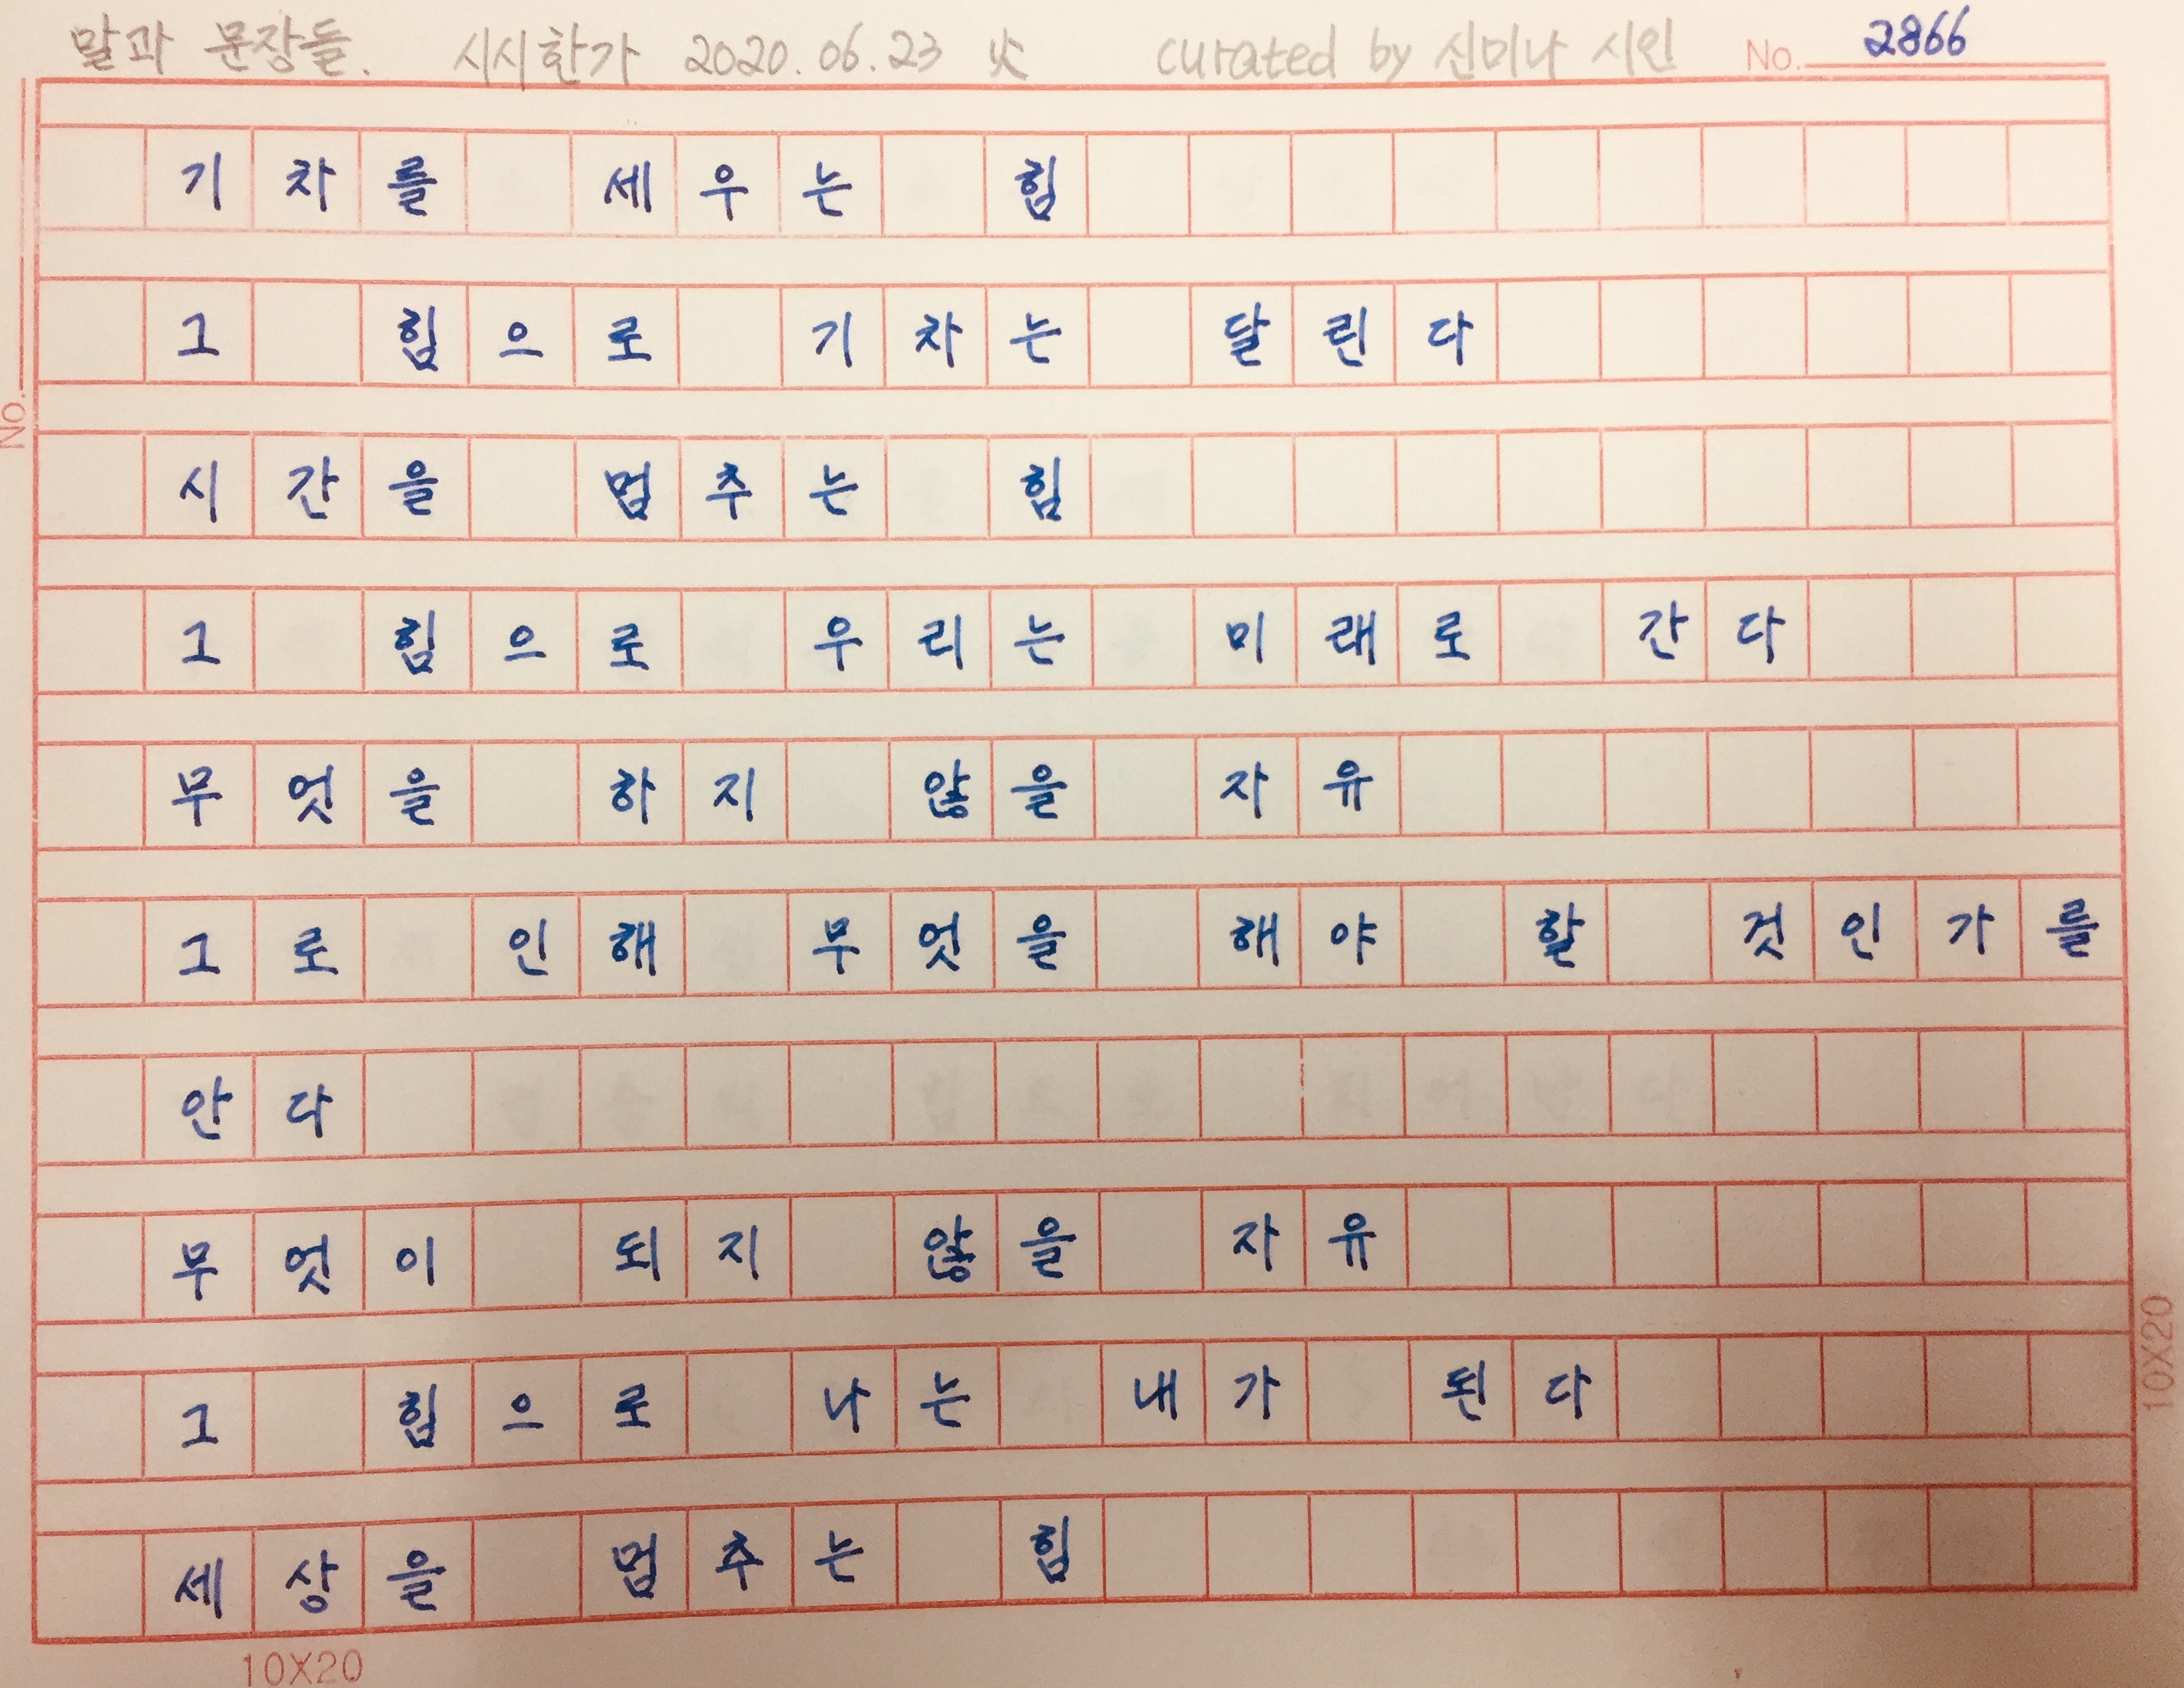 말과 문장들. 시시한가 2020.06.23 火 curated by 신미나 시인 No. 2866
기차를 세우는 힘
그 힘으로 기차는 달린다
시간을 멈추는 힘
No.
그 힘으로 우리는 미래로 간다
무엇을 하지 않을 자유
그로 인해 무엇을 해야 할 것인가를
안다
무엇이 되지 않을 자유
그 힘으로 나는 내가 된다
세상을 멈추는 힘
10X20
10X20